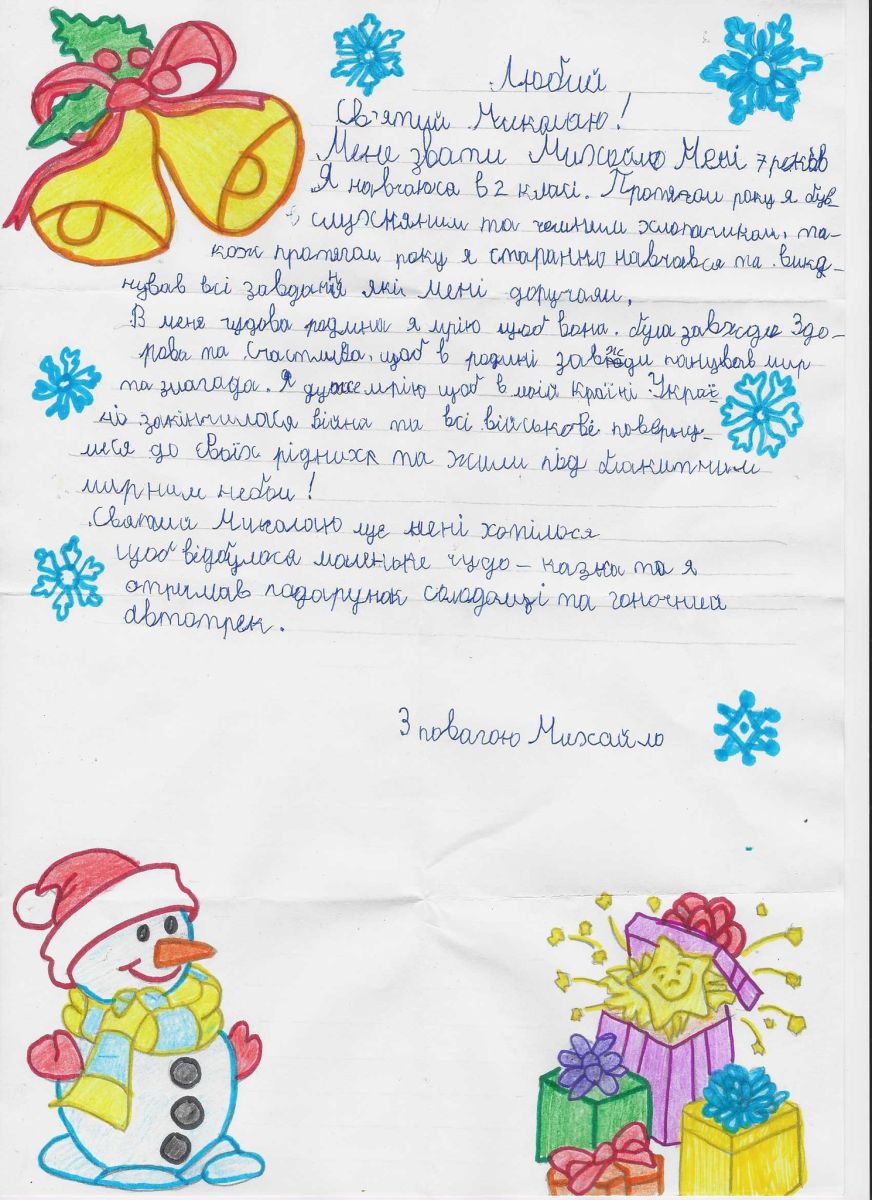 Любий
Св'ятий Миколаю!
Мене звати Михайло Мені 7 років
Я навчаюся в 2 класі. Протягом року я був
слухняним та чемним хлопчиком, та-
кож протягом року я старанно навчався та вико-
нував всі завдання які мені доручали.
В мене чудова родина я мрію щоб вона була завжди здо-
рова та щастлива, щоб в родині завжди панував мир
та злагода. Я дуже мрію щоб в моїй країні Украї-
ні закінчилася війна та всі військові поверну-
лися до своїх рідних та жили під блакитним
мирним небом!
Святий Миколаю ще мені хотілося
щоб відбулося маленьке чудо - казка та я
отримав подарунок солодощі та гоночний
автотрек.
З повагою Михайло